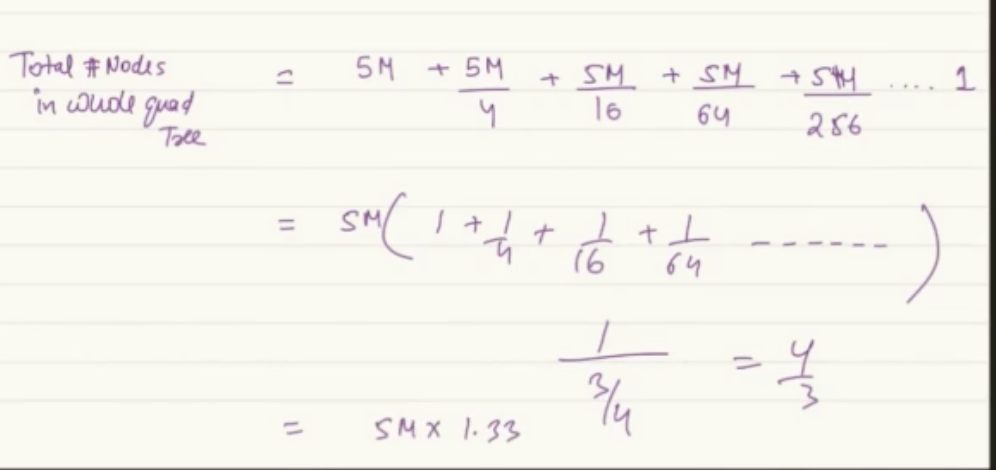 Total # Nodes in whole quad Tree = 5M + 5M/4 + 5M/16 + 5M/64 + 5M/256 .... 1
= 5M ( 1 + 1/4 + 1/16 + 1/64 ------ )
1 / 3/4 = 4/3
= 5M x 1.33